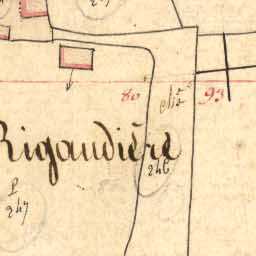 80
93
Rigaudière
246
P
247